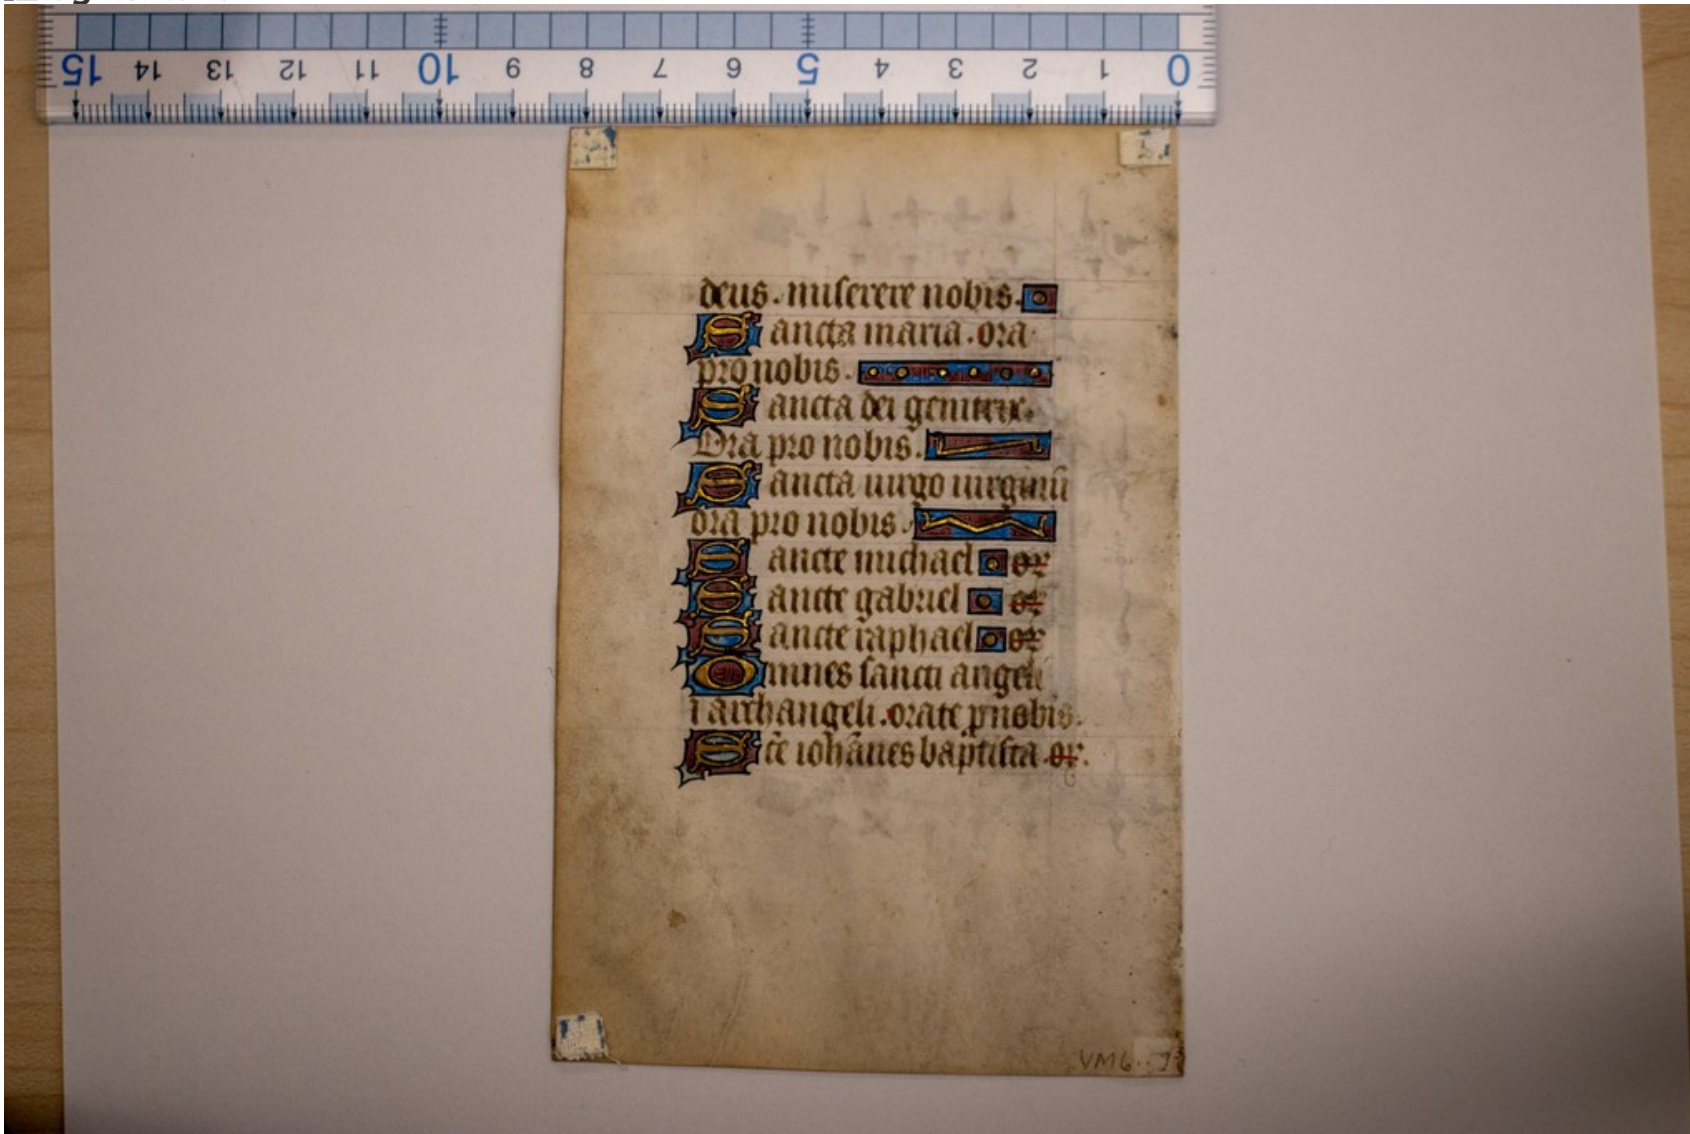 15 14 13 12 11 10 9 8 7 6 5 4 3 2 1 0
deus. miserere nobis.
Sancta maria. ora
pro nobis.
Sancta dei genitrix.
Ora pro nobis.
Sancta uirgo uirginū
ora pro nobis.
Sancte michael or
Sancte gabriel or
Sancte raphael or
Omnes sancti angeli
⁊ archangeli. orate p nobis.
Scē iohānes baptista or.
VM6